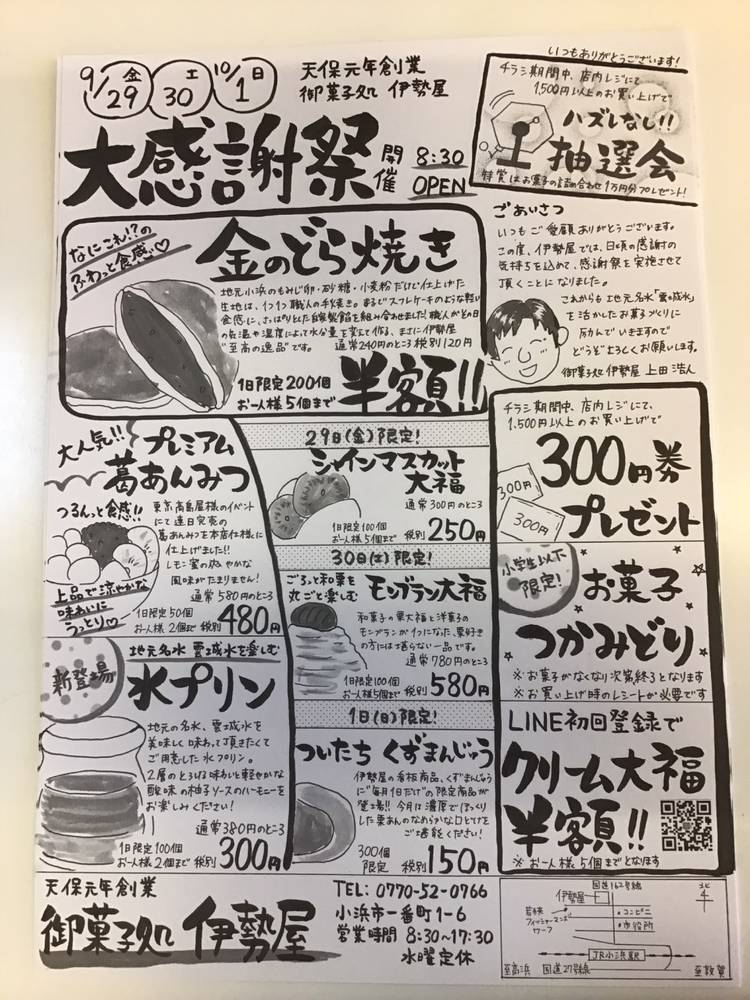 9/29金 30土 10/1日
天保元年創業
御菓子処 伊勢屋
大感謝祭
開催 8:30 OPEN
いつもありがとうございます!
チラシ期間中、店内レジにて
1,500円以上のお買い上げで
ハズレなし!!
抽選会
特賞はお菓子の詰め合わせ1万円分プレゼント!
なにこれ!?の
ふわっと食感♡
金のどら焼き
地元小浜のもみじ卵・砂糖・小麦粉だけで仕上げた
生地は、1つ1つ職人の手焼き。まるでスフレケーキのような軽い
食感に、さっぱりとした自家製餡を組み合わせました!職人がその日
の気温や湿度によって水分量を変えて作る、まさに伊勢屋
"至高の逸品"です。
通常240円のところ 税別120円
1日限定200個
お一人様5個まで
半額!!
ごあいさつ
いつもご愛顧ありがとうございます。
この度、伊勢屋では、日頃の感謝の
気持ちを込めて、感謝祭を実施させて
頂くことになりました。
これからも地元名水「雲城水」
を活かしたお菓子づくりに
励んでいきますので
どうぞよろしくお願いします。
御菓子処伊勢屋 上田 浩人
大人気!!
プレミアム
葛あんみつ
つるんっと食感!!
東京高島屋様のイベント
にて連日完売の
葛あんみつを本店仕様に
仕上げました!!
レモン蜜の爽やかな
風味がたまりません!
上品で涼やかな
味わいに
うっとり♡
通常580円のところ
1日限定50個
お一人様2個まで
税別480円
29日(金)限定!
シャインマスカット
大福
通常300円のところ
1日限定100個
お一人様5個まで
税別250円
30日(土)限定!
ごろっと和栗を
丸ごと楽しむ
モンブラン大福
和菓子の栗大福と洋菓子の
モンブランが1つになった、栗好き
の方には堪らない一品です。
通常780円のところ
1日限定100個
お一人様5個まで
税別580円
1日(日)限定!
ついたち くずまんじゅう
伊勢屋の看板商品、くずまんじゅう
に"毎月1日だけ"の限定商品が
登場!!今月は濃厚でほっくり
した栗あんのなめらかな口どけを
ご堪能ください!
300個
限定
税別150円
新登場
地元名水 雲城水を楽しむ
水プリン
地元の名水、雲城水を
美味しく味わって頂きたくて
ご用意した水プリン。
2層のとろける味わいと軽やかな
酸味の柚子ソースのハーモニーを
お楽しみください!
通常380円のところ
1日限定100個
お一人様2個まで
税別300円
チラシ期間中、店内レジにて、
1,500円以上のお買い上げで
300円券
プレゼント
300円
300円
小学生以下
限定!
お菓子
つかみどり
※お菓子がなくなり次第終了となります
※お買い上げ時のレシートが必要です
LINE初回登録で
クリーム大福
半額!!
※お一人様5個までとなります
天保元年創業
御菓子処 伊勢屋
TEL: 0770-52-0766
小浜市一番町1-6
営業時間 8:30~17:30
水曜定休
国道162号線
北
伊勢屋
若狭
フィッシャーマンズ
ワーフ
コンビニ
市役所
JR小浜駅
至高浜
国道27号線
至敦賀